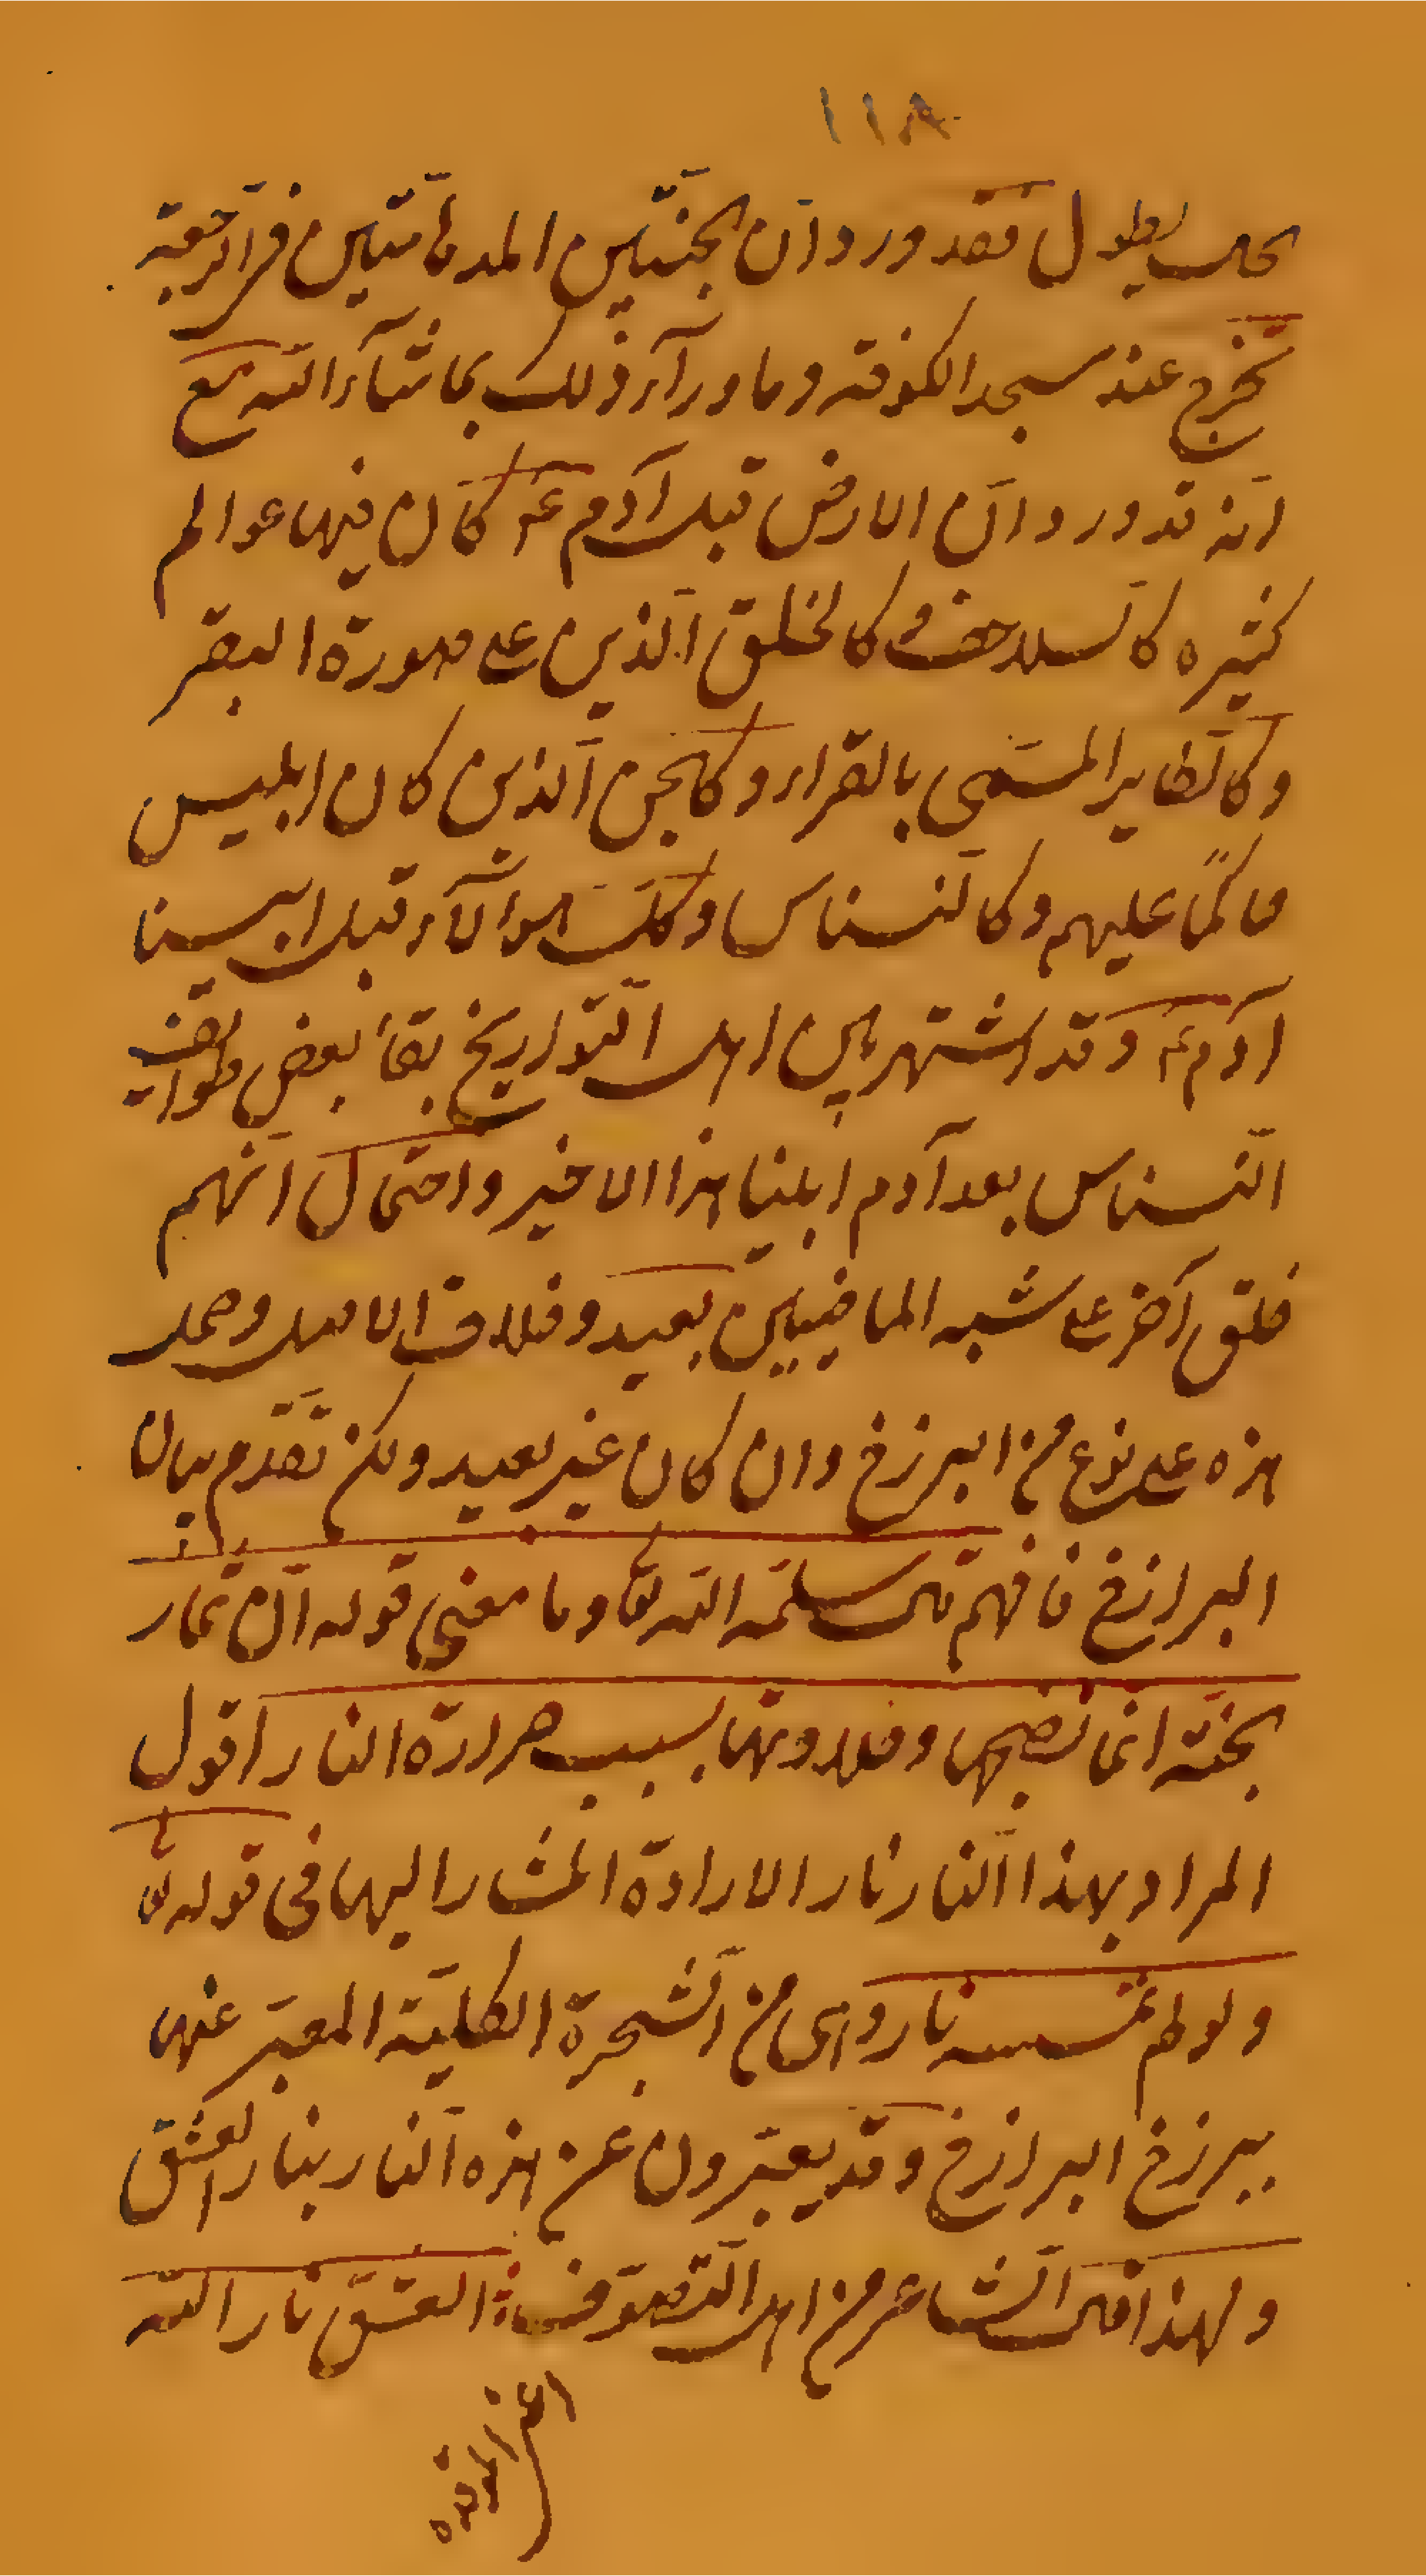 ١١٨
يطول فقد ورد انّ الجنّتين المدهامّتين في الرّجعة
تخرج عند مسجد الكوفة وما ورآء ذلك بما شآء اللّه مع
انّه قد ورد انّ الارض قبل آدم ع كان فيها عوالم
كثيره كالسلاحف و كالخلق الّذين على صورة البقر
وكالطّاير المسمّى بالقرار وكالجن الّذين كان ابليس
حاكمًا عليهم وكالنّسناس وكلّ هؤلآء قبل ابينا
آدم ع وقد اشتهر بين اهل التّواريخ بقاء بعض طوايف
النّسناس بعد آدم ابينا هذا الاخير واحتمال انّهم
خلق آخر على شبه الماضيين بعيد وخلاف الاصل وحمل
هذه على نوع من البرزخ وان كان غير بعيد ولكن تقدّم بيان
البرازخ فافهم قال سلّمه اللّه تعا وما معنى قوله انّ ثمار
الجنّة انما نضجها وحلاوتها بسبب حرارة النار اقول
المراد بهذا النّار نار الارادة المشار اليها في قوله تع
ولو لم تمسسه نار وهى من الشّجرة الكليّة المعبّر عنها
ببرزخ البرازخ وقد يعبّرون عن هذه النّار بنار العشق
ولهذا قال الشّاعر من اهل التّصوّف : العشق نار اللّه